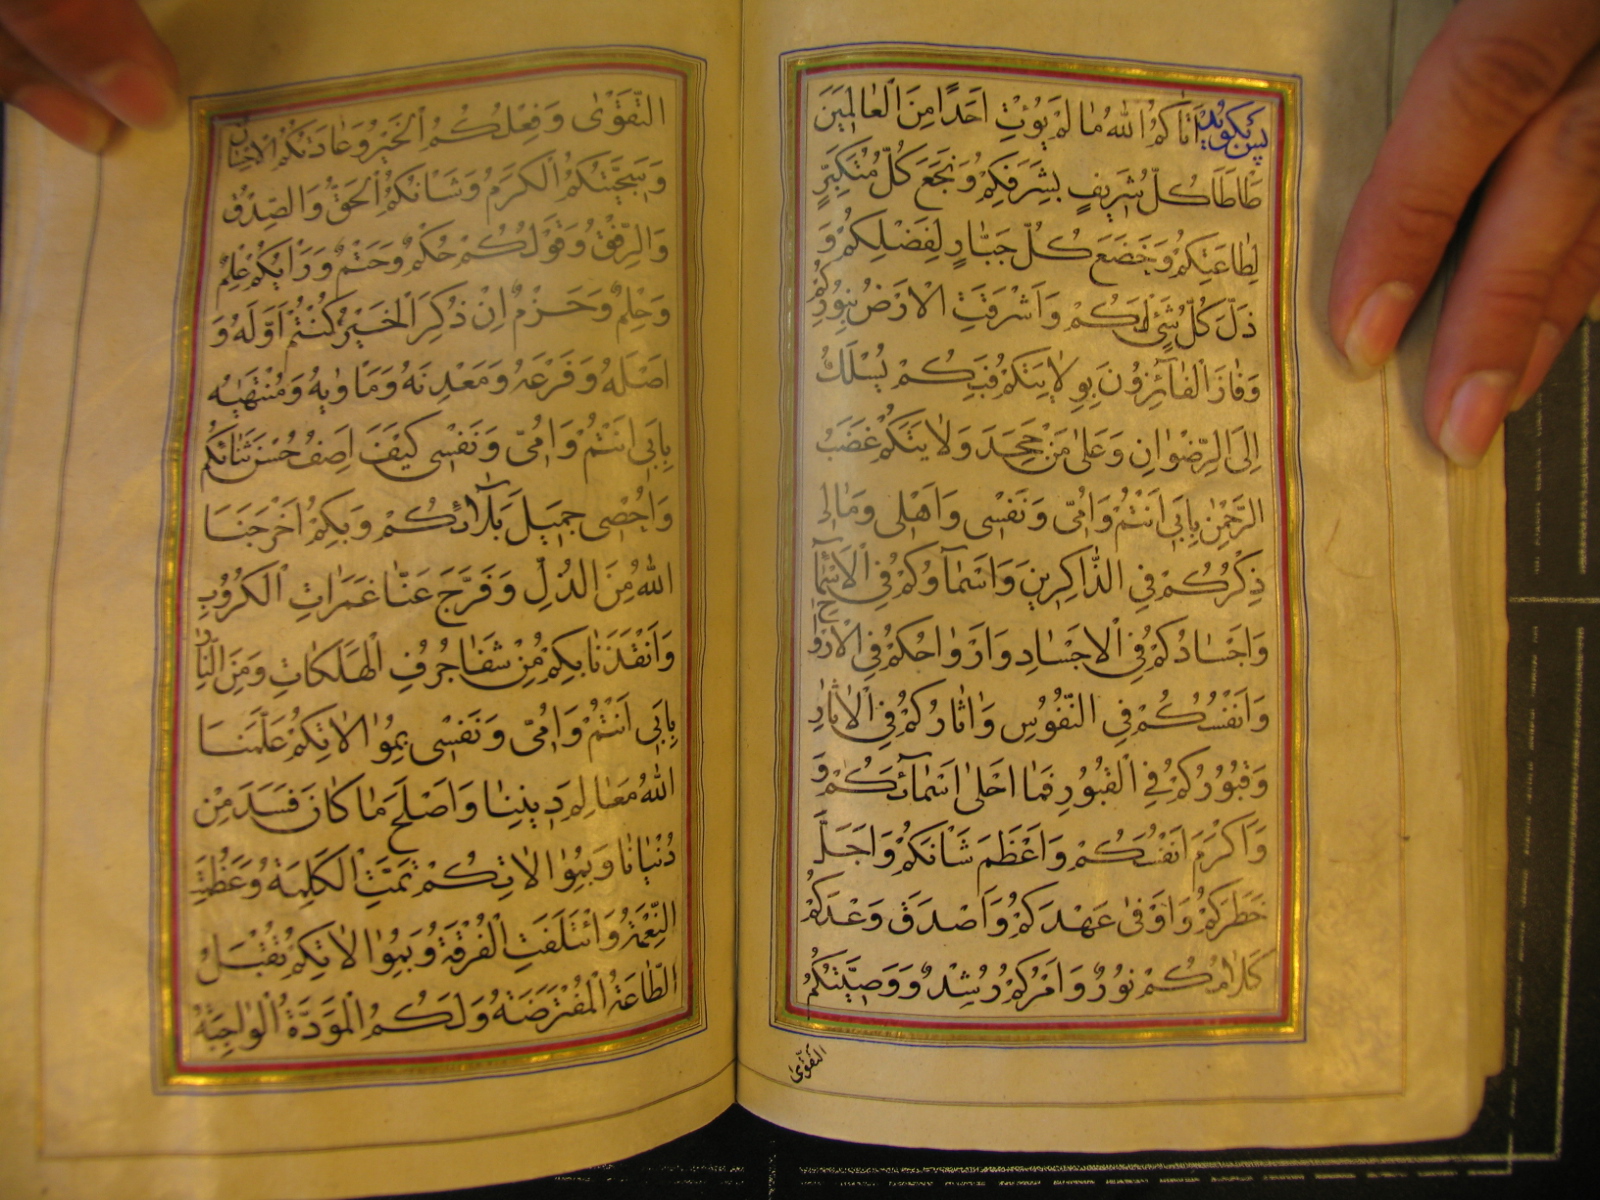 پس بگوید آتَاكُمُ اللهُ مَا لَمْ يُؤْتِ اَحَدًا مِنَ الْعَالَمِينَ
طَاطَاَ كُلُّ شَرِيفٍ بِشَرَفِكُمْ وَنَجَعَ كُلُّ مُتَكَبِّرٍ
لِطَاعَتِكُمْ وَخَضَعَ كُلُّ جَبَّارٍ لِفَضْلِكُمْ وَ
ذَلَّ كُلُّ شَيْءٍ لَكُمْ وَاَشْرَقَتِ الْاَرْضُ بِنُورِكُمْ
وَفَازَ الْفَائِزُونَ بِوِلَايَتِكُمْ فَبِكُمْ يُسْلَكُ
اِلَى الرِّضْوَانِ وَعَلَى مَنْ جَحَدَ وَلَايَتَكُمْ غَضَبُ
الرَّحْمٰنِ بِاَبِي اَنْتُمْ وَاُمِّي وَنَفْسِي وَاَهْلِي وَمَالِي
ذِكْرُكُمْ فِي الذَّاكِرِينَ وَاَسْمَاؤُكُمْ فِي الْاَسْمَاءِ
وَاَجْسَادُكُمْ فِي الْاَجْسَادِ وَاَرْوَاحُكُمْ فِي الْاَرْوَاحِ
وَاَنْفُسُكُمْ فِي النُّفُوسِ وَاٰثَارُكُمْ فِي الْاٰثَارِ
وَقُبُورُكُمْ فِي الْقُبُورِ فَمَا اَحْلَى اَسْمَائَكُمْ وَ
وَاَكْرَمَ اَنْفُسَكُمْ وَاَعْظَمَ شَانَكُمْ وَاَجَلَّ
خَطَرَكُمْ وَاَوْفَى عَهْدَكُمْ وَاَصْدَقَ وَعْدَكُمْ
كَلَامُكُمْ نُورٌ وَاَمْرُكُمْ رُشْدٌ وَوَصِيَّتُكُمُ
التَّقْوَى
التَّقْوٰى وَفِعْلُكُمُ الْخَيْرُ وَعَادَتُكُمُ الْاِحْسَانُ
وَسَجِيَّتُكُمُ الْكَرَمُ وَشَانُكُمُ الْحَقُّ وَالصِّدْقُ
وَالرِّفْقُ وَقَوْلُكُمْ حُكْمٌ وَحَتْمٌ وَرَاْيُكُمْ عِلْمٌ
وَحِلْمٌ وَحَزْمٌ اِنْ ذُكِرَ الْخَيْرُ كُنْتُمْ اَوَّلَهُ وَ
اَصْلَهُ وَفَرْعَهُ وَمَعْدِنَهُ وَمَاْوٰيهُ وَمُنْتَهٰيهُ
بِاَبِي اَنْتُمْ وَاُمِّي وَنَفْسِي كَيْفَ اَصِفُ حُسْنَ ثَنَائِكُمْ
وَاُحْصِي جَمِيلَ بَلَائِكُمْ وَبِكُمْ اَخْرَجَنَا
اللهُ مِنَ الذُّلِّ وَفَرَّجَ عَنَّا غَمَرَاتِ الْكُرُوبِ
وَاَنْقَذَنَا بِكُمْ مِنْ شَفَا جُرُفِ الْهَلَكَاتِ وَمِنَ النَّارِ
بِاَبِي اَنْتُمْ وَاُمِّي وَنَفْسِي بِمُوَالَاتِكُمْ عَلَّمَنَا
اللهُ مَعَالِمَ دِينِنَا وَاَصْلَحَ مَا كَانَ فَسَدَ مِنْ
دُنْيَانَا وَبِمُوَالَاتِكُمْ تَمَّتِ الْكَلِمَةُ وَعَظُمَتِ
النِّعْمَةُ وَائْتَلَفَتِ الْفُرْقَةُ وَبِمُوَالَاتِكُمْ تُقْبَلُ
الطَّاعَةُ الْمُفْتَرَضَةُ وَلَكُمُ الْمَوَدَّةُ الْوَاجِبَةُ